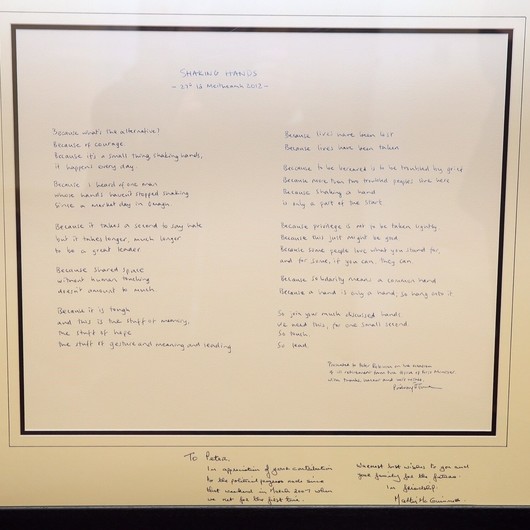 SHAKING HANDS
- 27th Meitheamh 2012 -
Because what's the alternative?
Because of courage.
Because it's a small thing, shaking hands,
it happens every day.
Because I heard of one man
whose hands haven't stopped shaking
since a market day in Omagh.
Because it takes a second to say hate
but it takes longer, much longer
to be a great leader.
Because shared space
without human touching
doesn't amount to much.
Because it is tough
and this is the stuff of memory,
the stuff of hope
the stuff of gesture and meaning and leading
Because lives have been lost
Because lives have been taken
Because to be bereaved is to be troubled by grief
Because more than two troubled peoples live here
Because shaking a hand
is only a part of the start
Because privilege is not to be taken lightly
Because this just might be good
Because some people love what you stand for,
and for some, if you can, they can.
Because solidarity means a common hand
Because a hand is only a hand, so hang onto it
So join your much discussed hands
we need this, for one small second
So touch.
So lead.
Presented to Peter Robinson on the occasion
of his retirement from the office of First Minister
with thanks, and best wishes,
Pádraig Ó Tuama
To Peter
In appreciation of your contribution
to the political progress made since
that weekend in March 2007 when
we met for the first time.
Warmest best wishes to you and
your family for the future.
In friendship.
Martin McGuinness